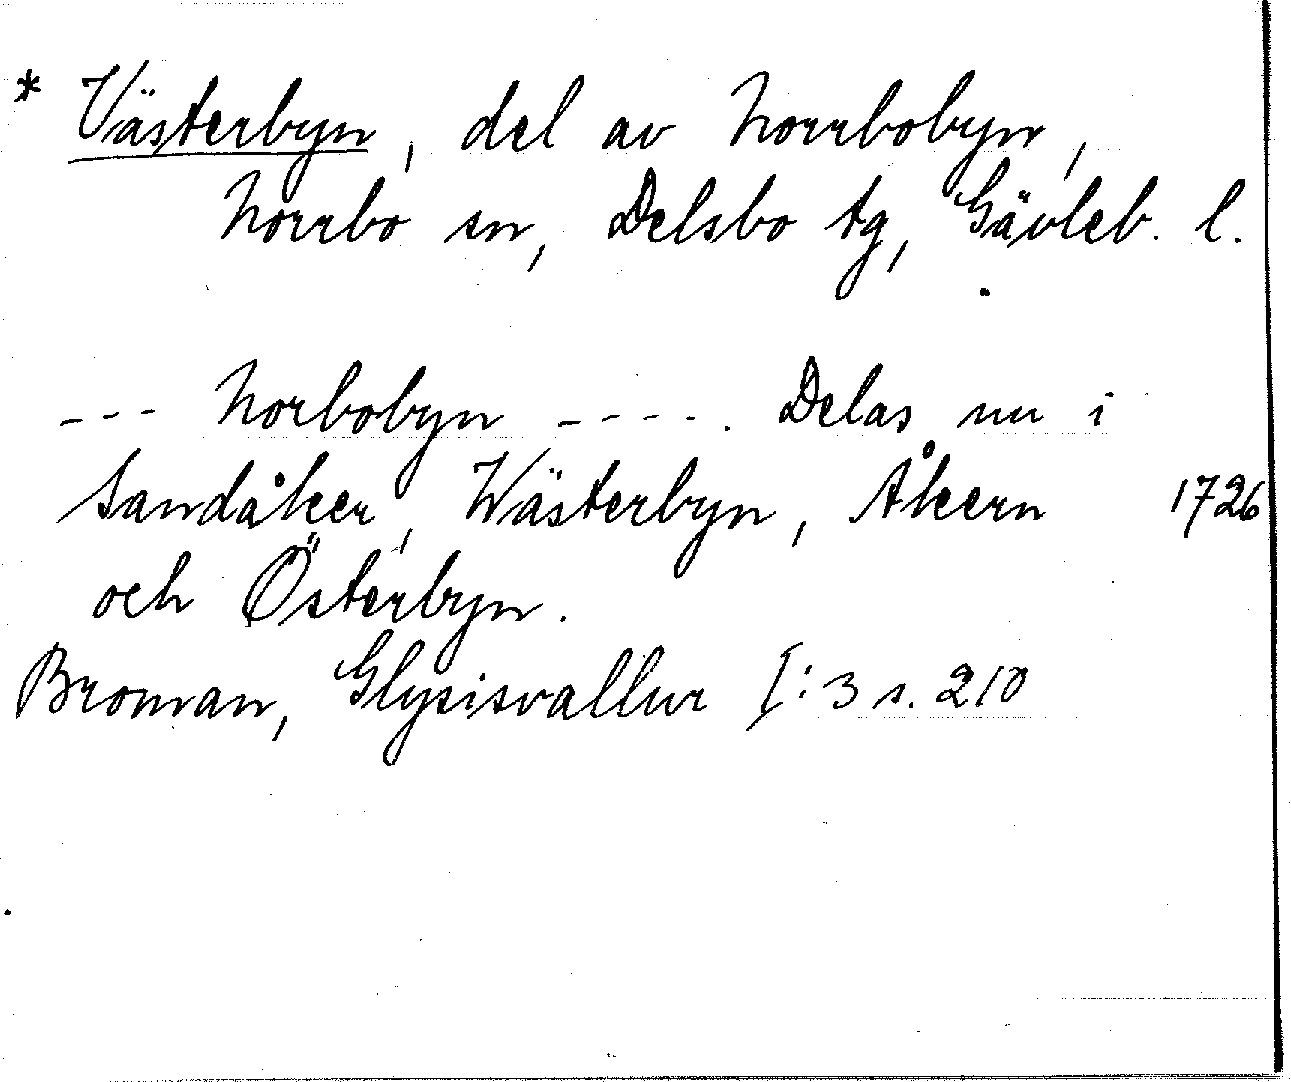 * Västerbyn, del av Norrbobyn,
Norrbo sn, Delsbo tg, Gävleb. l.
--- Norbobyn ----. Delas nu i
Sandåker, Wästerbyn, Åkern 1726
och Österbyn.
Broman, Glysisvallur I:3 s. 210